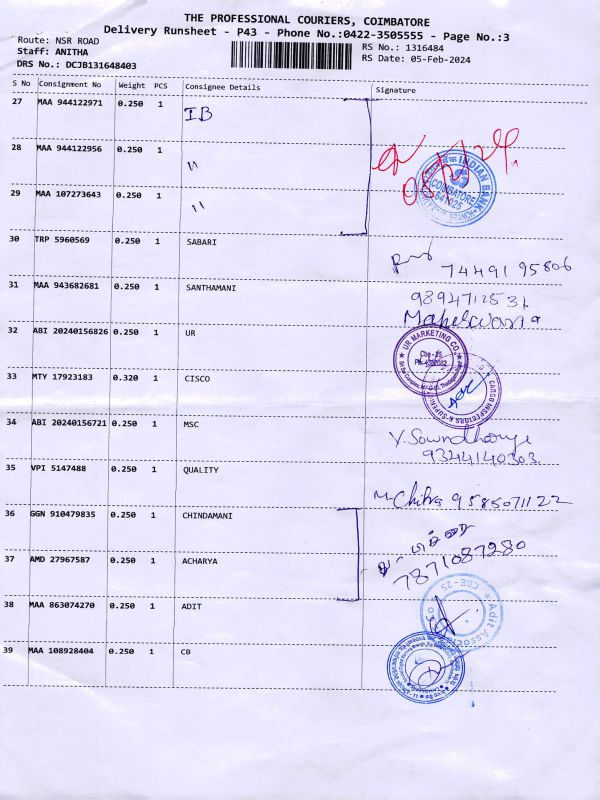 THE PROFESSIONAL COURIERS, COIMBATORE
Delivery Runsheet - P43 - Phone No.:0422-3505555 - Page No.:3
Route: NSR ROAD
Staff: ANITHA
DRS No.: DCJB131648403
RS No.: 1316484
RS Date: 05-Feb-2024
S No Consignment No Weight PCS Consignee Details Signature
27 MAA 944122971 0.250 1 IB
28 MAA 944122956 0.250 1 "
29 MAA 107273643 0.250 1 "
INDIAN BANK
COIMBATORE
641025
30 TRP 5960569 0.250 1 SABARI
7449195806
31 MAA 943682681 0.250 1 SANTHAMANI
9894712531
Maheswari
32 ABI 20240156826 0.250 1 UR
UR MARKETING CO.
Cbe - 25
33 MTY 17923183 0.320 1 CISCO
34 ABI 20240156721 0.250 1 MSC
Y. Soundharya
9344140303
35 VPI 5147488 0.250 1 QUALITY
M. Chitra 9585071122
36 GGN 910479835 0.250 1 CHINDAMANI
37 AMD 27967587 0.250 1 ACHARYA
7871087280
38 MAA 863074270 0.250 1 ADIT
Adit Associ
CBE-25
39 MAA 108928404 0.250 1 CB